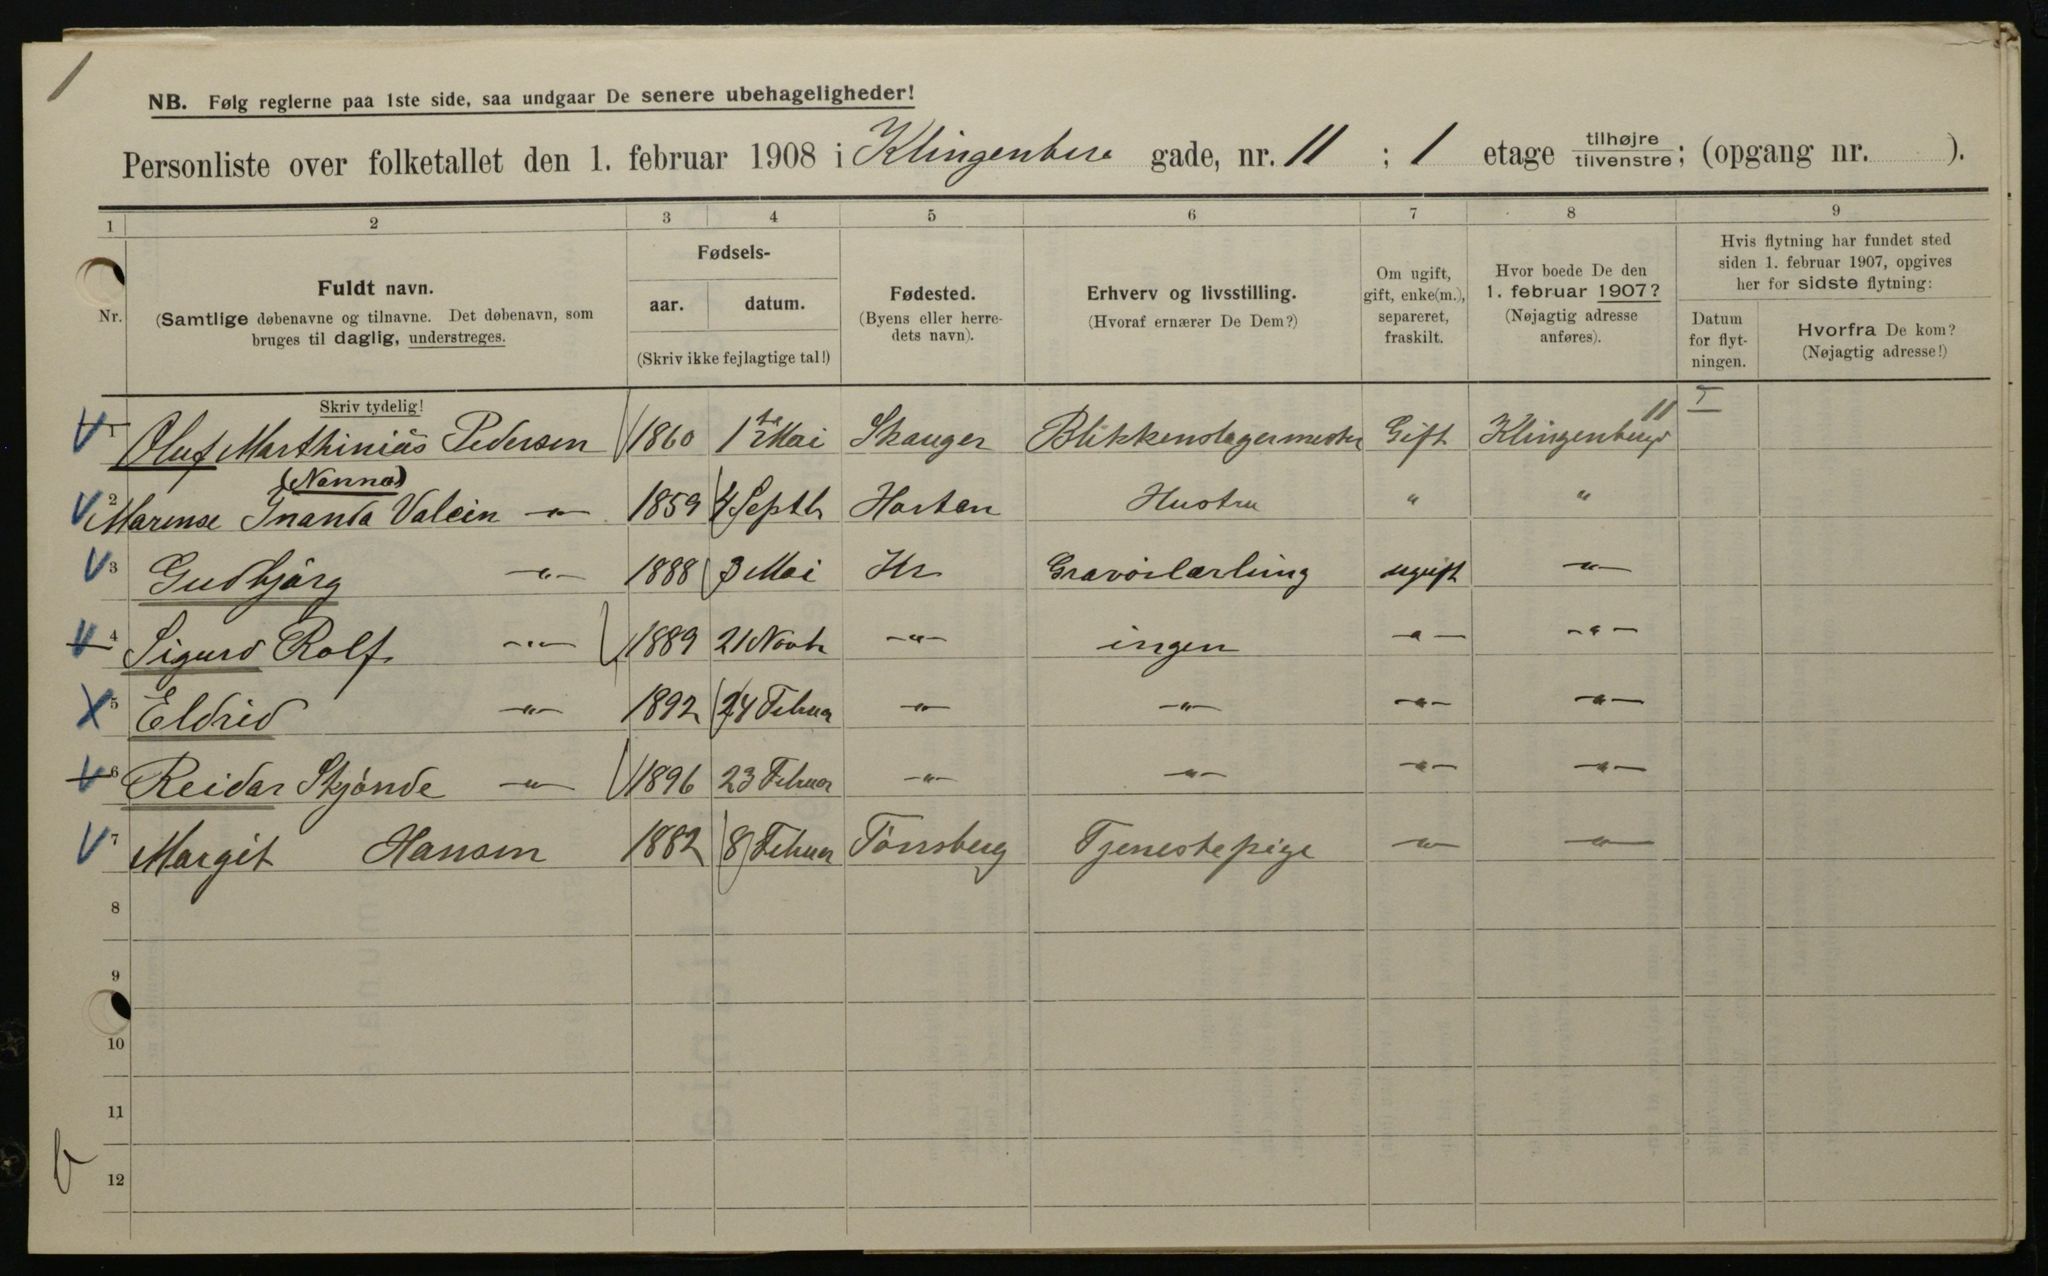 1
NB. Følg reglerne paa 1ste side, saa undgaar De senere ubehageligheder!
Personliste over folketallet den 1. februar 1908 i Klingenberg gade, nr. 11 ; 1 etage tilhøjre tilvenstre ; (opgang nr. ).
1 2 3 4 5 6 7 8 9
Nr.
Fuldt navn.
(Samtlige døbenavne og tilnavne. Det døbenavn, som
bruges til daglig, understreges.
Skriv tydelig!
Fødsels-
aar. datum.
(Skriv ikke fejlagtige tal!)
Fødested.
(Byens eller herre-
dets navn).
Erhverv og livsstilling.
(Hvoraf ernærer De Dem?)
Om ugift,
gift, enke(m.),
separeret,
fraskilt.
Hvor boede De den
1. februar 1907?
(Nøjagtig adresse
anføres).
Hvis flytning har fundet sted
siden 1. februar 1907, opgives
her for sidste flytning:
Datum
for flyt-
ningen.
Hvorfra De kom?
(Nøjagtig adresse!)
1 Oluf Marthinius Pedersen 1860 1 Mai Skauger Blikkenslagermester Gift Klingenbergd 11
(Nanna)
2 Marense Inanda Valein -"- 1859 4 Septb Horten Hustru " "
3 Gudbjørg -"- 1888 3 Mai Kr Gravørlærling ugift -"-
4 Sigurd Rolf -"- 1889 21 Novb -"- ingen -"- -"-
5 Eldrid -"- 1892 24 Februar -"- -"- -"- -"-
6 Reidar Skjønde -"- 1896 23 Februar -"- -"- -"- -"-
7 Margit Hansen 1882 8 Februar Tønsberg Tjenestepige -"- -"-
8
9
10
11
12